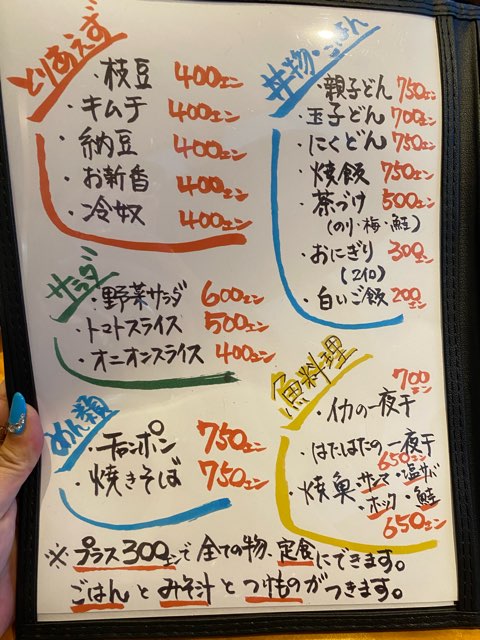 とりあえず
・枝豆 400エン
・キムチ 400エン
・納豆 400エン
・お新香 400エン
・冷奴 400エン
サラダ
・野菜サラダ 600エン
・トマトスライス 500エン
・オニオンスライス 400エン
めん類
・チャンポン 750エン
・焼きそば 750エン
丼物・ごはん
・親子どん 750エン
・玉子どん 700エン
・にくどん 750エン
・焼飯 750エン
・茶づけ 500エン
(のり・梅・鮭)
・おにぎり 300エン
(2コ)
・白いご飯 200エン
魚料理
・イカの一夜干 700エン
・はたはたの一夜干 650エン
・焼魚 サンマ・塩サバ
・ホッケ・鮭
650エン
※プラス300エンで全ての物、定食にできます。
ごはんとみそ汁とつけものがつきます。